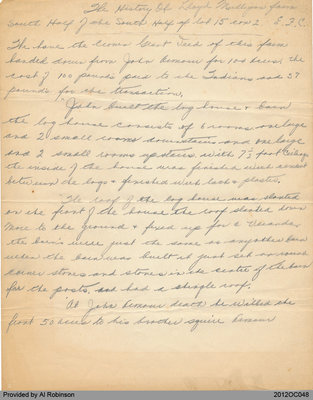 The History of Lloyd Mulligan farm
South Half of the South Half of lot 15 con 2. S.F.C.
The have the Crown Grant Deed of this farm
handed down from John Lemour for 100 acres the
cost of 100 pounds paid to the Indians and 57
pounds for the transaction.
John built the log house & barn
the log house consists of 6 rooms one large
and 2 small rooms downstairs and one large
and 2 small rooms upstairs with 7½ foot ceilings
the inside of the house was finished with cement
between the logs & finished with lath & plaster.
The roof of the log house was slanted
on the front of the house the roof slanted down
more to the ground & fixed up for a Veranda,
the barn were just the same as any other barn
when the barn was built it just set on round
corner stones and stones in the centre of the barn
for the posts, and had a shingle roof.
At John Lemour death he willed the
front 50 acres to his brother squire Lemour
Provided By Al Robinson
2012OC048